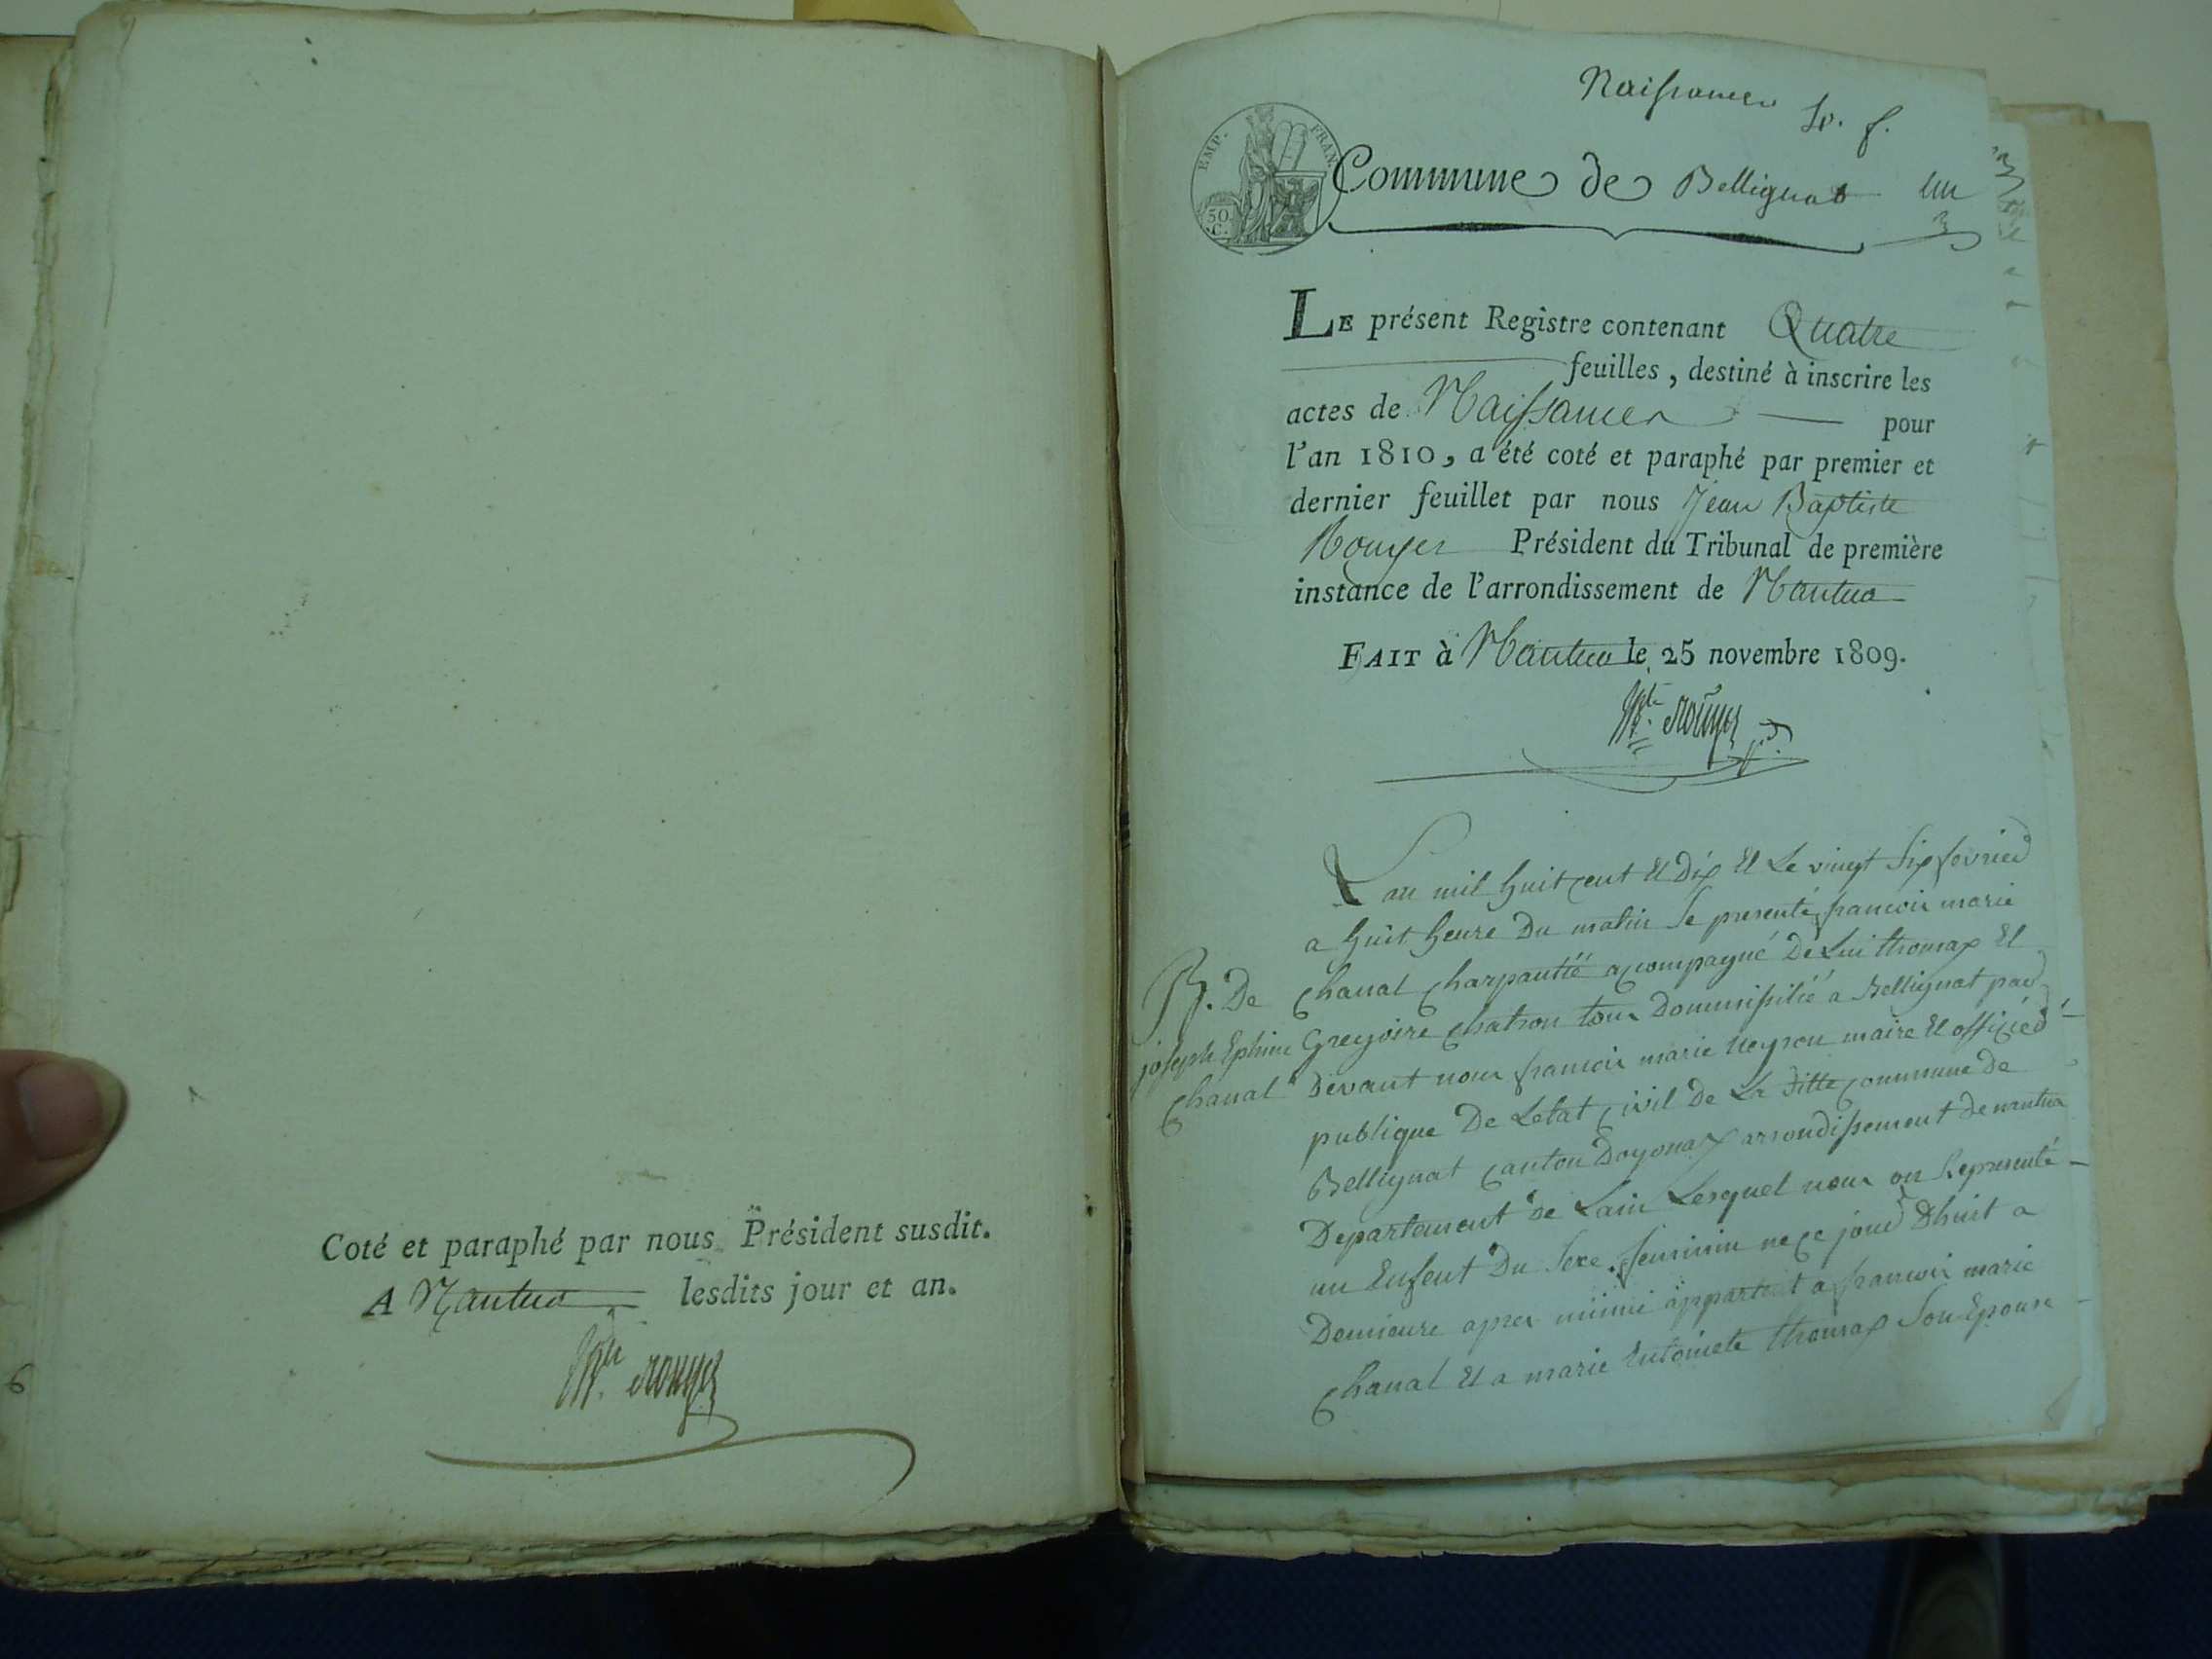 Coté et paraphé par nous Président susdit.
A Nantua lesdits jour et an.
Bte. Rouyer
6
Naissances
EMP. FRAN.
50 C.
Commune de Bellignat un
LE présent Registre contenant Quatre
feuilles, destiné à inscrire les
actes de Naissances pour
l'an 1810, a été coté et paraphé par premier et
dernier feuillet par nous Jean Baptiste
Rouyer Président du Tribunal de première
instance de l'arrondissement de Nantua
FAIT à Nantua le 25 novembre 1809.
Bte. Rouyer
Lan mil huit cent et Dix et Le vingt Six fevried
a huit heure Du matin Se presenté francois marie
Chanal Charpantié acompagné De Lui thomax et
Gregoire Chatron tous Dommissilié a Bellignat pad
Devant nous francois marie neyron maire et officied
publique De Letat Civil De La Ditte Commune De
Bellignat Canton Doyonax arrondissement De nantua
Departement De Lain Lesquel nous on Representé
un Enfent Du Sexe feminin ne Ce joud Dhuit a
Demieure apres minui appartent a francois marie
Chanal et a marie Entoinete thomax Son Epouse
N. De
joseph Ephine
Chanal